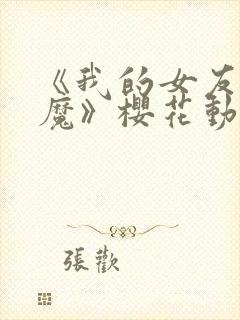 《我的女友
魔》櫻花動
張歡